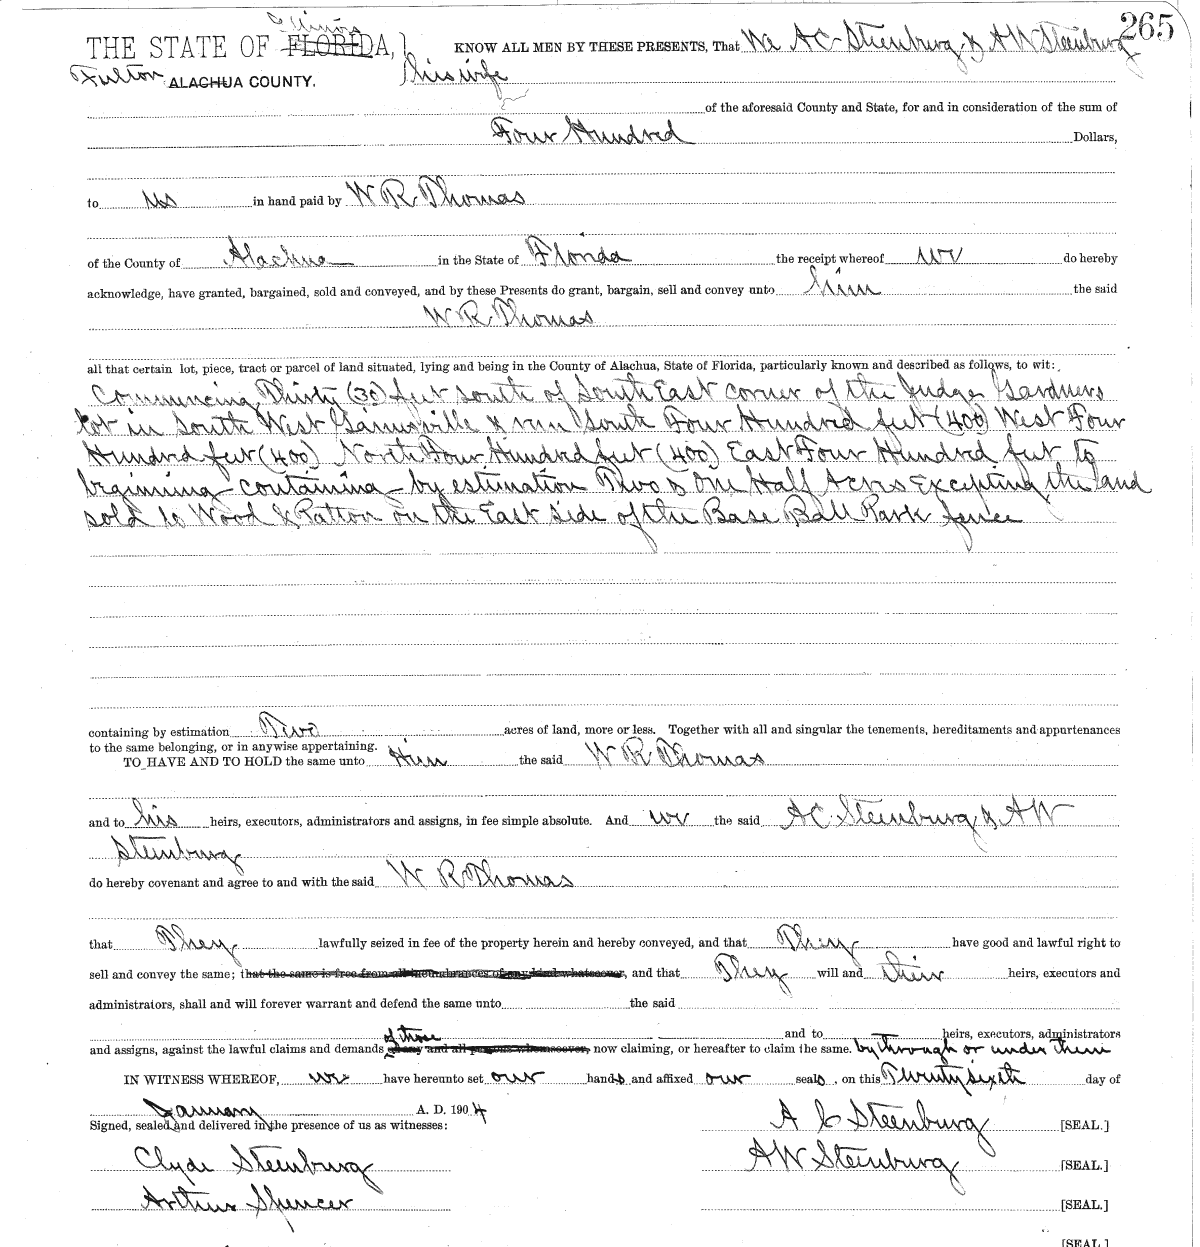 265
Illinois
THE STATE OF FLORIDA, KNOW ALL MEN BY THESE PRESENTS, That We A C Steenburg & A W Steenburg
Fulton ALACHUA COUNTY. his wife
of the aforesaid County and State, for and in consideration of the sum of
Four Hundred Dollars,
to us in hand paid by W R Thomas
of the County of Alachua in the State of Florida the receipt whereof we do hereby
acknowledge, have granted, bargained, sold and conveyed, and by these Presents do grant, bargain, sell and convey unto him the said
W R Thomas
all that certain lot, piece, tract or parcel of land situated, lying and being in the County of Alachua, State of Florida, particularly known and described as follows, to wit:
Commencing Thirty (30) feet south of South East corner of the Judge Gardners
lot in South West Gainesville & run South Four Hundred feet (400) West Four
Hundred feet (400) North Four Hundred feet (400) East Four Hundred feet to
beginning containing by estimation Two & One Half Acres Excepting the land
sold to Wood & Patton on the East side of the Base Ball Park fence
containing by estimation Two acres of land, more or less. Together with all and singular the tenements, hereditaments and appurtenances
to the same belonging, or in anywise appertaining.
TO HAVE AND TO HOLD the same unto Him the said W R Thomas
and to his heirs, executors, administrators and assigns, in fee simple absolute. And we the said A C Steenburg & A W
Steenburg
do hereby covenant and agree to and with the said W R Thomas
that They lawfully seized in fee of the property herein and hereby conveyed, and that They have good and lawful right to
sell and convey the same; that the same is free from all incumbrances of any kind whatsoever, and that They will and their heirs, executors and
administrators, shall and will forever warrant and defend the same unto the said
and to heirs, executors, administrators
of those
and assigns, against the lawful claims and demands of any and all persons whomsoever, now claiming, or hereafter to claim the same. by through or under them
IN WITNESS WHEREOF, we have hereunto set our hands and affixed our seals, on this Twenty sixth day of
January A. D. 1904
Signed, sealed and delivered in the presence of us as witnesses: A C Steenburg [SEAL.]
Clyde Steenburg A W Steenburg [SEAL.]
Arthur Spencer [SEAL.]
[SEAL.]